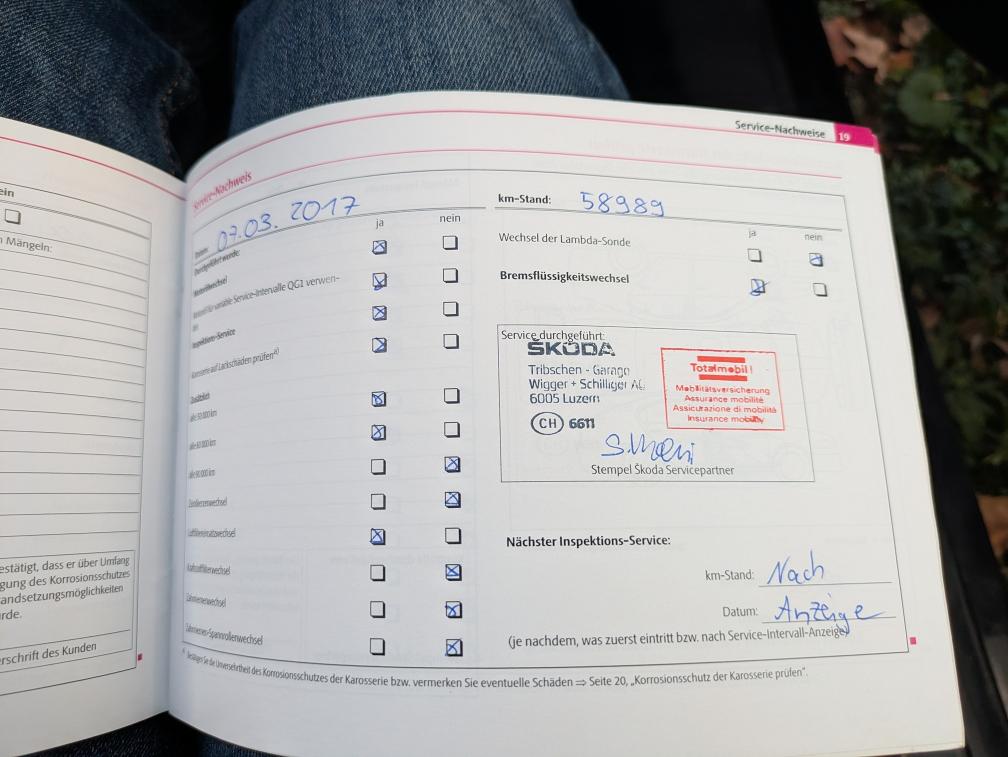 Service-Nachweise 19
ein
n Mängeln:
estätigt, dass er über Umfang
gung des Korrosionsschutzes
andsetzungsmöglichkeiten
rde.
erschrift des Kunden
Service-Nachweis
Datum: 07.03.2017
Durchgeführt wurde: ja nein
Motorölwechsel
Motoröl für variable Service-Intervalle QG1 verwen-
det
Inspektions-Service
Karosserie auf Lackschäden prüfen a)
Zusätzlich
alle 30 000 km
alle 60 000 km
alle 90 000 km
Zündkerzenwechsel
Luftfiltereinsatzwechsel
Kraftstofffilterwechsel
Zahnriemenwechsel
Zahnriemen-Spannrollenwechsel
km-Stand: 58989
ja nein
Wechsel der Lambda-Sonde
Bremsflüssigkeitswechsel
Service durchgeführt:
ŠKODA
Tribschen - Garage
Wigger + Schilliger AG
6005 Luzern
CH 6611
Totalmobil!
Mobilitätsversicherung
Assurance mobilité
Assicurazione di mobilità
Insurance mobility
Stempel Škoda Servicepartner
Nächster Inspektions-Service:
km-Stand: Nach
Datum: Anzeige
(je nachdem, was zuerst eintritt bzw. nach Service-Intervall-Anzeige)
a) Bestätigen Sie die Unversehrtheit des Korrosionsschutzes der Karosserie bzw. vermerken Sie eventuelle Schäden ⇒ Seite 20, „Korrosionsschutz der Karosserie prüfen“.